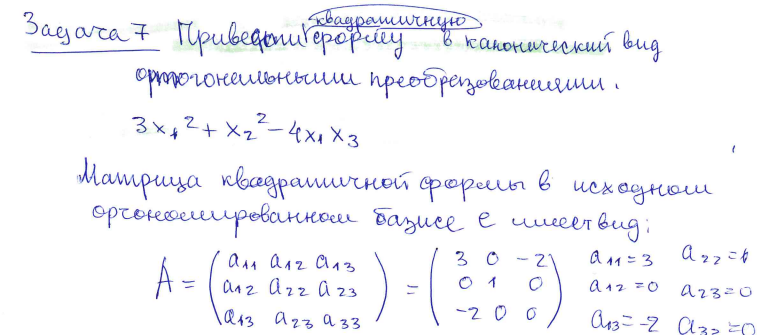 Задача 7 Привести квадратичную форму в канонический вид
ортогональными преобразованиями.
3x₁² + x₂² - 4x₁x₃
Матрица квадратичной формы в исходном
ортономированном базисе e имеет вид:
A = (a₁₁ a₁₂ a₁₃; a₁₂ a₂₂ a₂₃; a₁₃ a₂₃ a₃₃) = (3 0 -2; 0 1 0; -2 0 0) a₁₁=3 a₂₂=1
a₁₂=0 a₂₃=0
a₁₃=-2 a₃₂=0